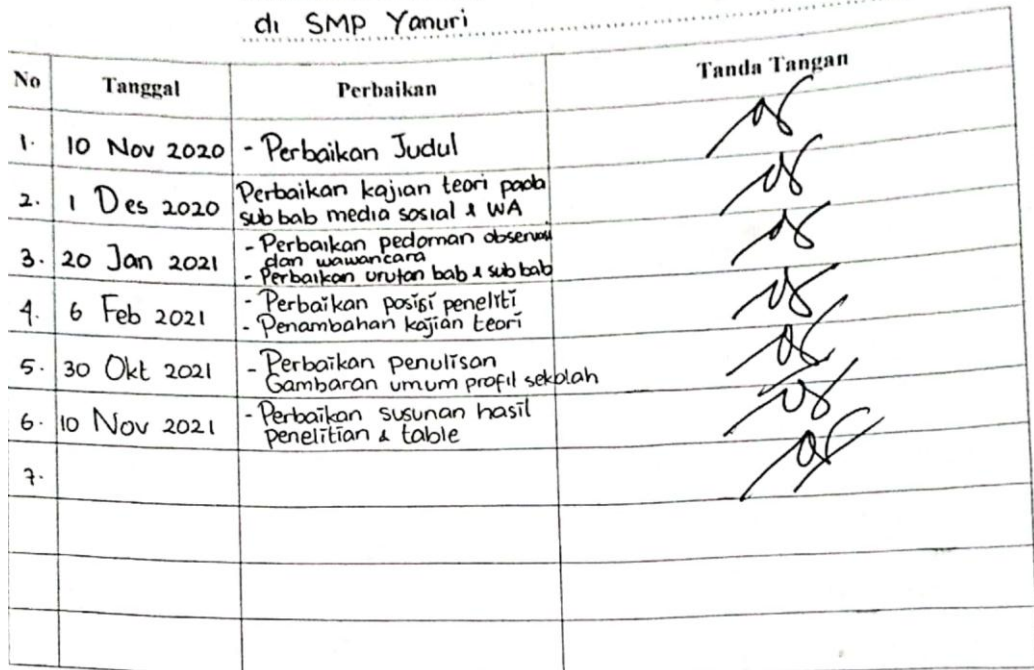 di SMP Yanuri
No Tanggal Perbaikan Tanda Tangan
1. 10 Nov 2020 - Perbaikan Judul
2. 1 Des 2020 Perbaikan kajian teori pada
sub bab media sosial & WA
3. 20 Jan 2021 - Perbaikan pedoman observasi
dan wawancara
- Perbaikan urutan bab & sub bab
4. 6 Feb 2021 - Perbaikan posisi peneliti
- Penambahan kajian teori
5. 30 Okt 2021 - Perbaikan penulisan
Gambaran umum profil sekolah
6. 10 Nov 2021 - Perbaikan susunan hasil
penelitian & table
7.